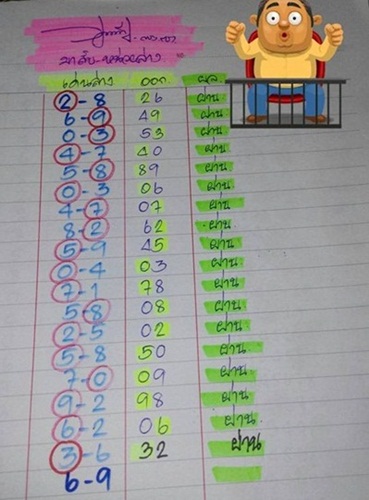 มาลับ-หน่วยล่าง
เด่นล่าง ออก ผล
2-8 26 ผ่าน
6-9 49 ผ่าน
0-3 53 ผ่าน
4-7 40 ผ่าน
5-8 89 ผ่าน
0-3 06 ผ่าน
4-7 07 ผ่าน
8-2 62 ผ่าน
5-9 45 ผ่าน
0-4 03 ผ่าน
7-1 78 ผ่าน
5-8 08 ผ่าน
2-5 02 ผ่าน
5-8 50 ผ่าน
7-0 09 ผ่าน
9-2 98 ผ่าน
6-2 06 ผ่าน
3-6 32 ผ่าน
6-9